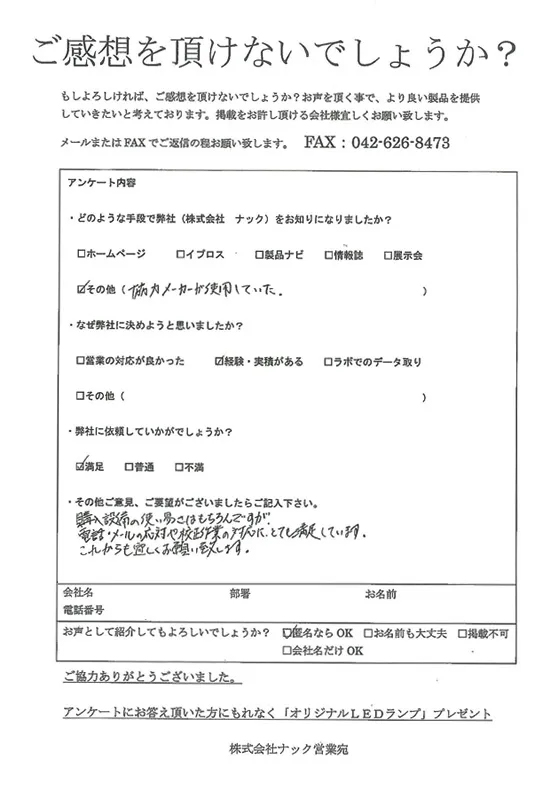 ご感想を頂けないでしょうか？
もしよろしければ、ご感想を頂けないでしょうか？お声を頂く事で、より良い製品を提供
していきたいと考えております。掲載をお許し頂ける会社様宜しくお願い致します。
メールまたはFAXでご返信の程お願い致します。 FAX：042-626-8473
アンケート内容
・どのような手段で弊社（株式会社 ナック）をお知りになりましたか？
□ホームページ □イプロス □製品ナビ □情報誌 □展示会
☑その他（協力メーカーが使用していた。 ）
・なぜ弊社に決めようと思いましたか？
□営業の対応が良かった ☑経験・実積がある □ラボでのデータ取り
□その他（ ）
・弊社に依頼していかがでしょうか？
☑満足 □普通 □不満
・その他ご意見、ご要望がございましたらご記入下さい。
購入設備の使い易さはもちろんですが、
電話・メールの応対や校正作業の対応に、とても満足しています。
これからも宜しくお願い致します。
会社名 部署 お名前
電話番号
お声として紹介してもよろしいでしょうか？ ☑匿名なら OK □お名前も大丈夫 □掲載不可
□会社名だけ OK
ご協力ありがとうございました。
アンケートにお答え頂いた方にもれなく「オリジナルＬＥＤランプ」プレゼント
株式会社ナック営業宛